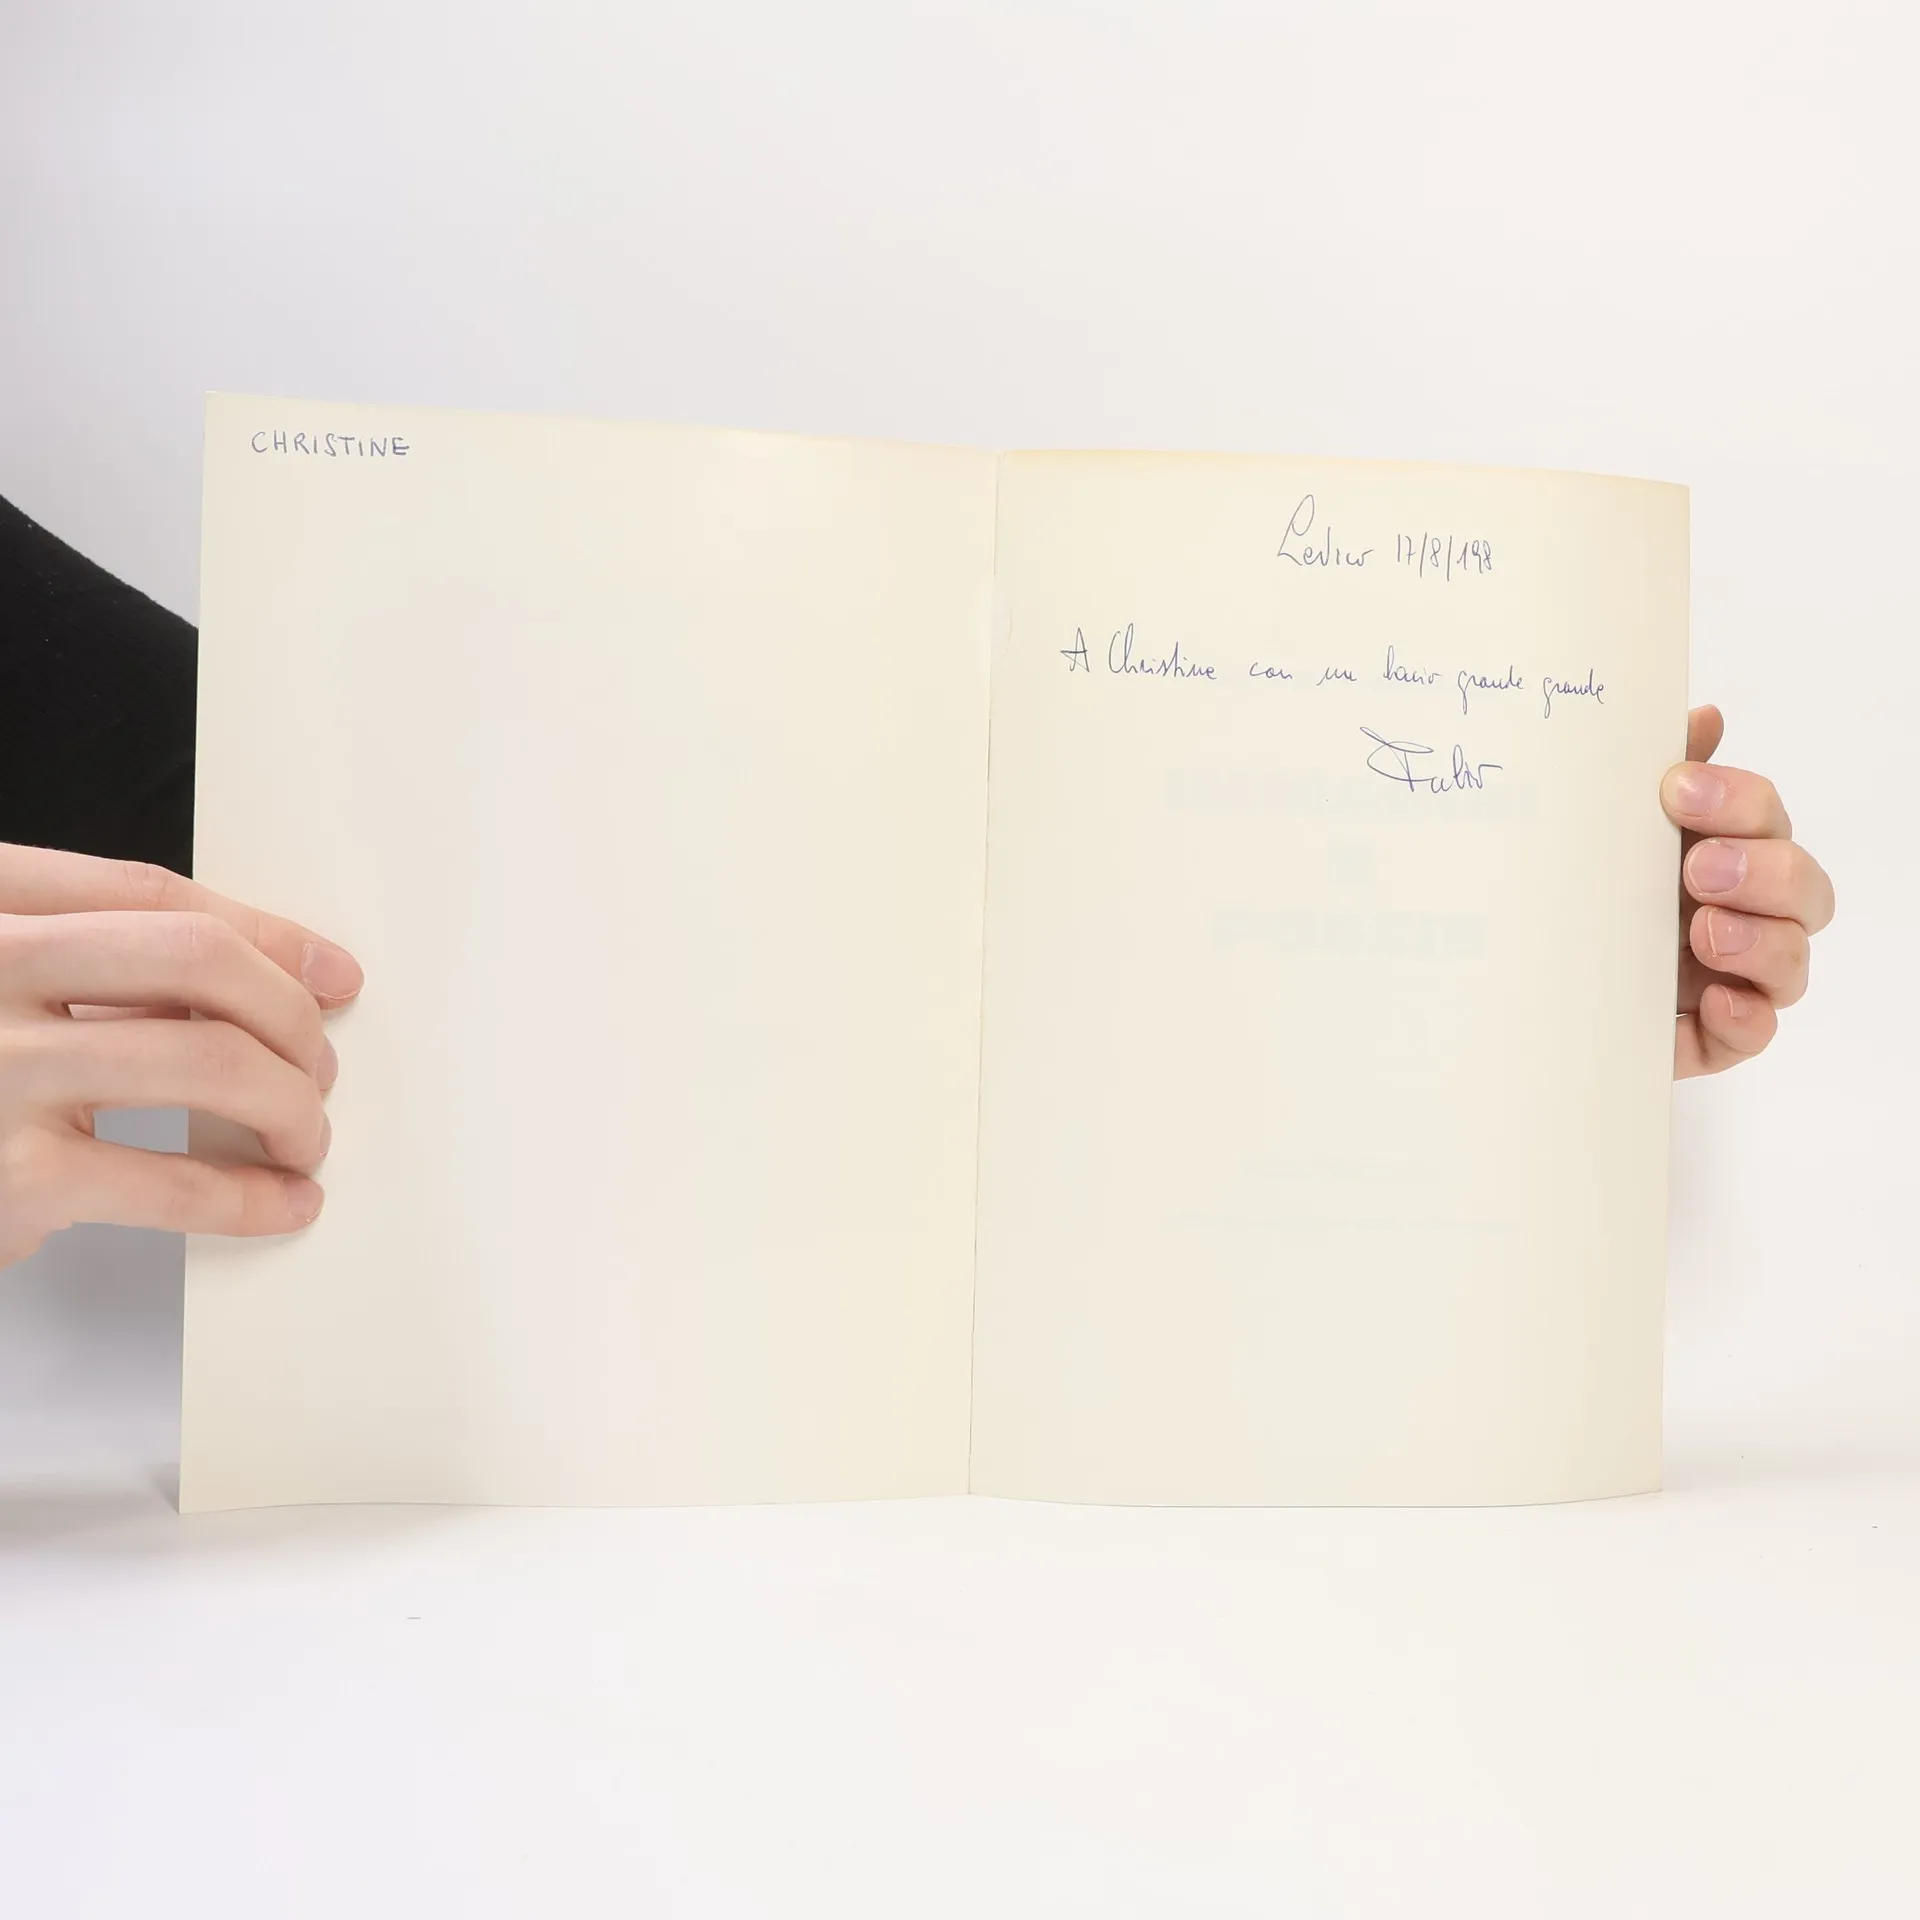 CHRISTINE
Levico 17/8/198
A Christine con un bacio grande grande
Fabio